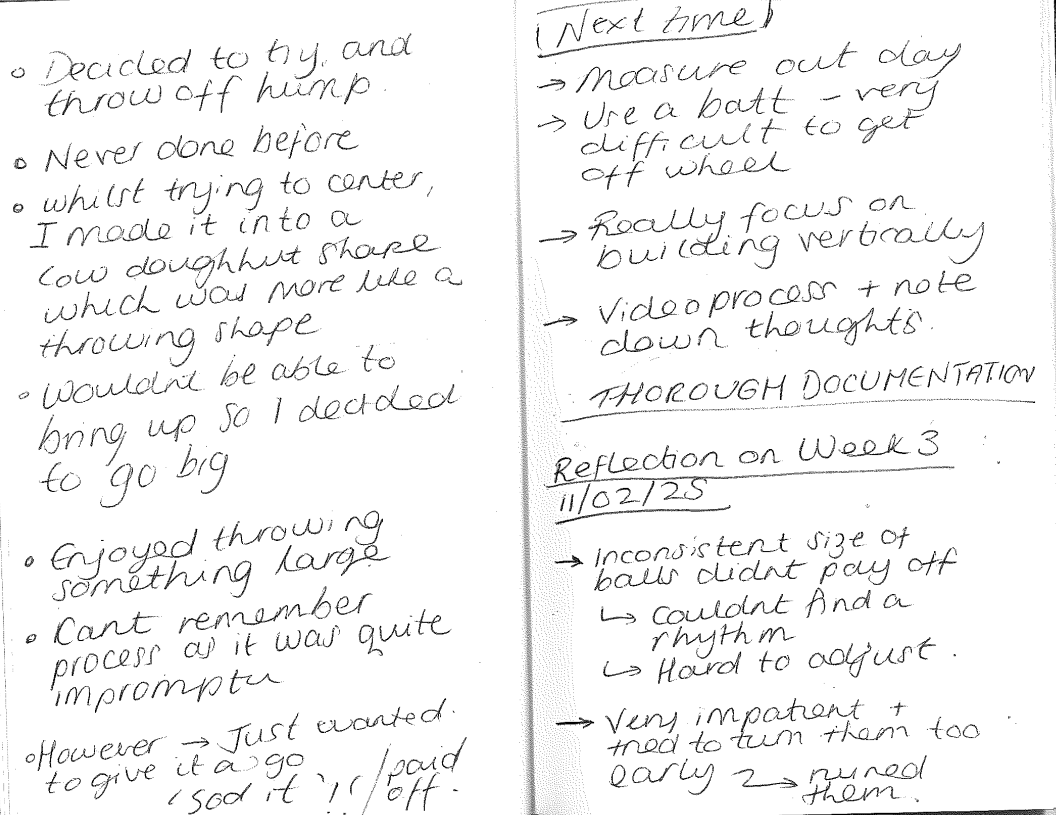 ◦ Decided to try, and
throw off hump.
◦ Never done before
◦ whilst trying to center,
I made it into a
low doughhut shape
which was more like a
throwing shape
◦ Wouldnt be able to
bring up so I decided
to go big
◦ Enjoyed throwing
something large
◦ Cant remember
process as it was quite
impromptu
◦ However → Just wanted.
to give it a go
'sod it'!! / paid
off.
[Next time]
→ Measure out clay
→ Use a batt - very
difficult to get
off wheel
→ Really focus on
building vertically
→ Video process + note
down thoughts.
THOROUGH DOCUMENTATION
Reflection on Week 3
11/02/25
→ Inconsistent size of
balls didnt pay off
↳ Couldnt find a
rhythm
↳ Hard to adjust.
→ Very impatient +
tried to turn them too
early → ruined
them.